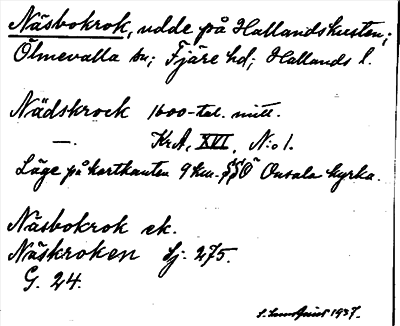 Näsbokrok, udde på Hallandskusten;
Ölmevalla sn; Fjäre hd; Hallands l.
Nädskrock 1600-tal. mitt.
—. KrA, XVI, N:o 1.
Läge på kartkanten 9 km. SSÖ Onsala kyrka.
Näsbokrok ek.
Näskroken sj. 275.
G. 24.
1937.